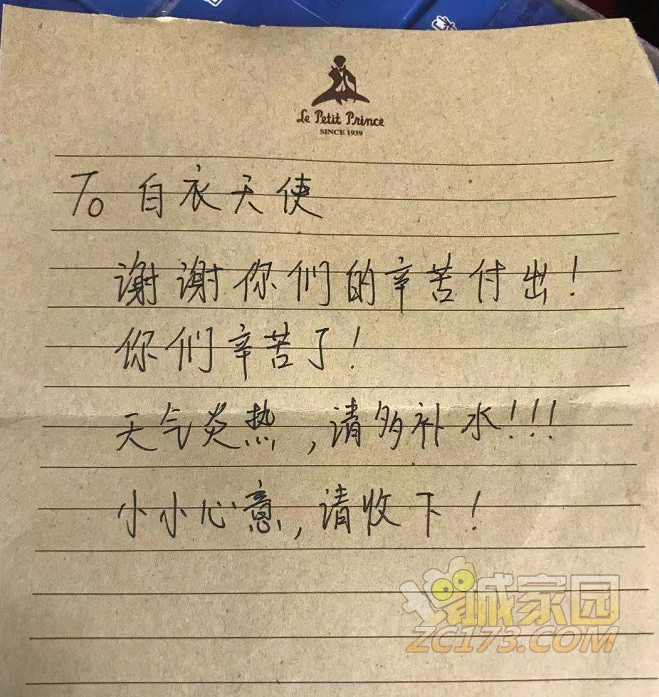 Le Petit Prince
SINCE 1939
To 白衣天使
谢谢你们的辛苦付出！
你们辛苦了！
天气炎热，请多补水！！！
小小心意，请收下！
诚家园
ZC173.COM